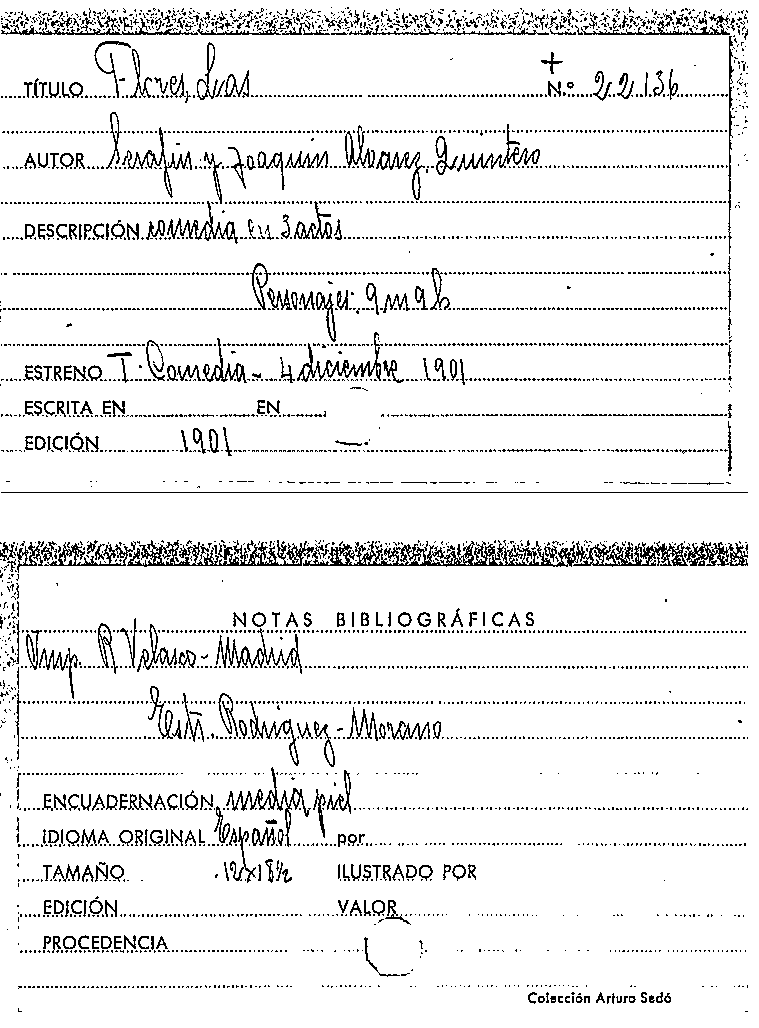 TÍTULO Flores, Las + N.º 22136
AUTOR Serafin y Joaquin Alvarez Quintero
DESCRIPCIÓN comedia en 3 actos
Personajes: 9 m 9 h
ESTRENO T. Comedia - 4 diciembre 1901
ESCRITA EN EN
EDICIÓN 1901 —
NOTAS BIBLIOGRÁFICAS
Imp. R Velasco - Madrid
Estr. Rodriguez - Morano
ENCUADERNACIÓN media piel
IDIOMA ORIGINAL Español por
TAMAÑO 12x18½ ILUSTRADO POR
EDICIÓN VALOR
PROCEDENCIA
Colección Arturo Sedó